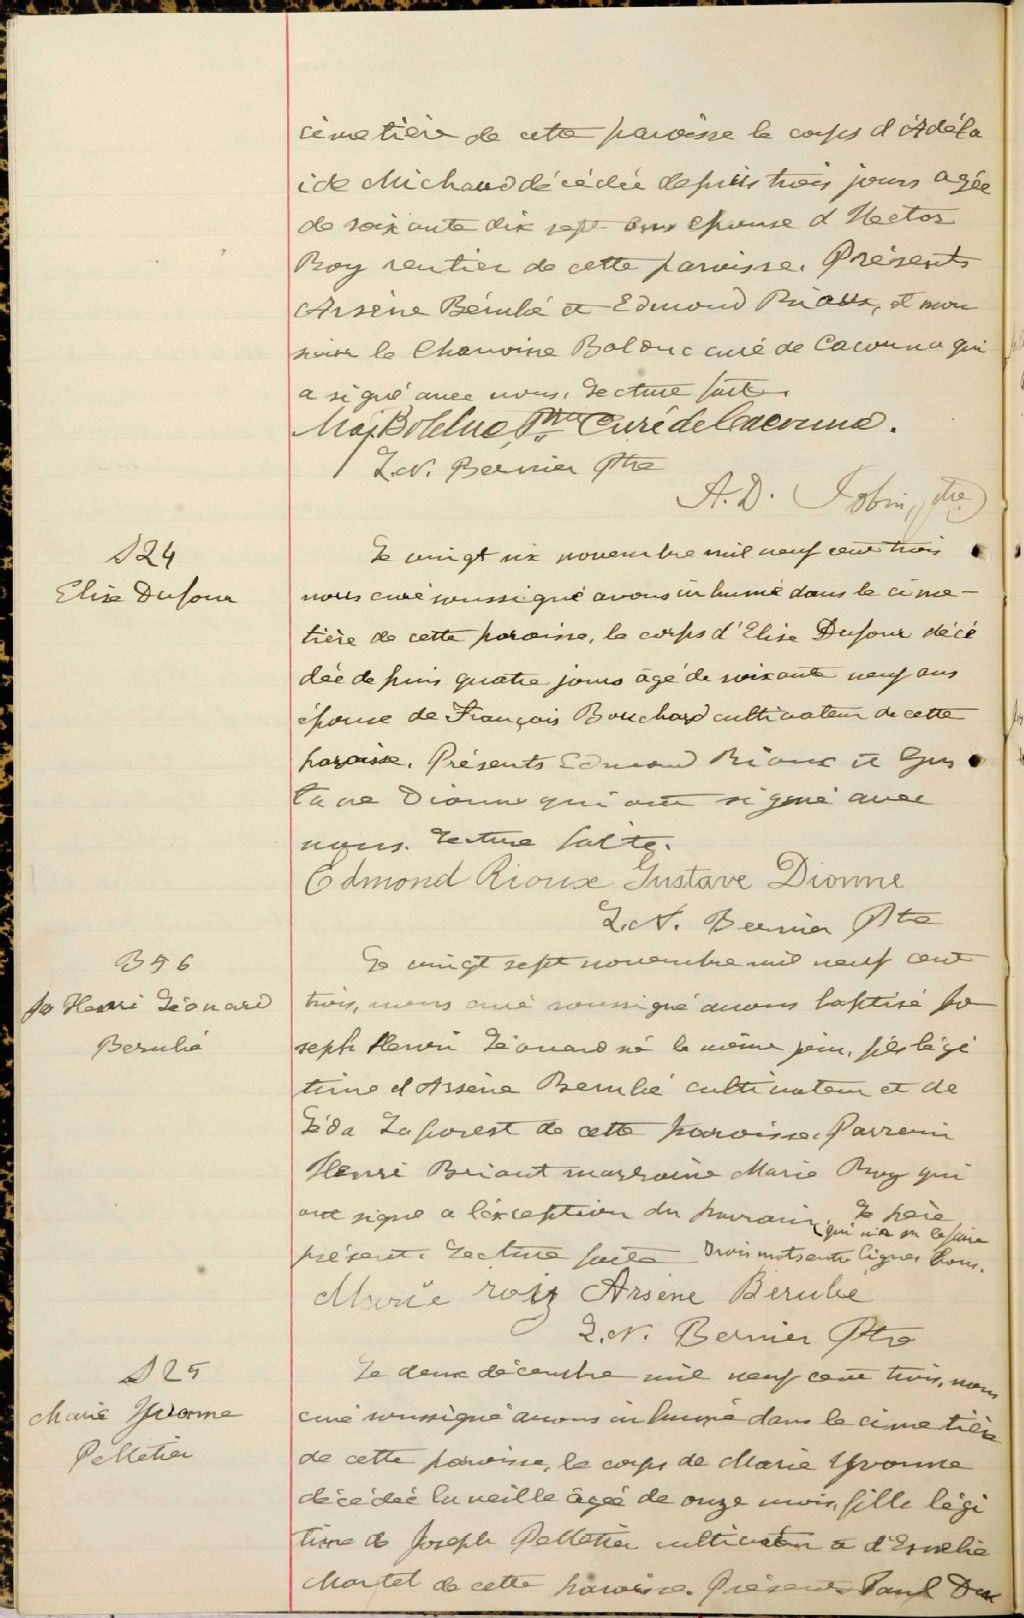 cimetière de cette paroisse le corps d'Adéla
ide Michaud décédée depuis trois jours agée
de soixante dix sept ans épouse d'Hector
Roy rentier de cette paroisse. Présents
Arsène Bérubé et Edmond Rioux, et mon
sieur le Chanoine Bolduc curé de Cacouna qui
a signé avec nous. Lecture faite.
Maj Bolduc, Ptre Curé de Cacouna.
L.N. Bernier Ptre
A. D. Tobin, ptre
S24
Elise Dufour
Le vingt six novembre mil neuf cent trois
nous curé soussigné avons inhumé dans le cime-
tière de cette paroisse, le corps d'Elise Dufour décé
dée depuis quatre jours âgé de soixante neuf ans
épouse de François Bouchard cultivateur de cette
paroisse. Présents Edmond Rioux et Gus
tave Dionne qui ont signé avec
nous. Lecture faite.
Edmond Rioux Gustave Dionne
L.N. Bernier Ptre
B56
Jos Henri Léonard
Berubé
Le vingt sept novembre mil neuf cent
trois, nous curé soussigné avons baptisé Jo
seph Henri Léonard né le même jour, fils légi
time d'Arsène Berubé cultivateur et de
Léda Laforest de cette paroisse. Parrain
Henri Briant marraine Marie Roy qui
ont signé a l'exception du parrain, Le père
qui n'a su le faire
présent. Lecture faite Trois mots entre lignes bons.
Marie roiy Arsène Bérubé
L.N. Bernier Ptre
S25
Marie Yvonne
Pelletier
Le deux décembre mil neuf cent trois, nous
curé soussigné avons inhumé dans le cimetière
de cette paroisse, le corps de Marie Yvonne
décédée la veille âgée de onze mois, fille légi
time de Joseph Pelletier cultivateur et d'Emelie
Martel de cette paroisse. Présents Paul